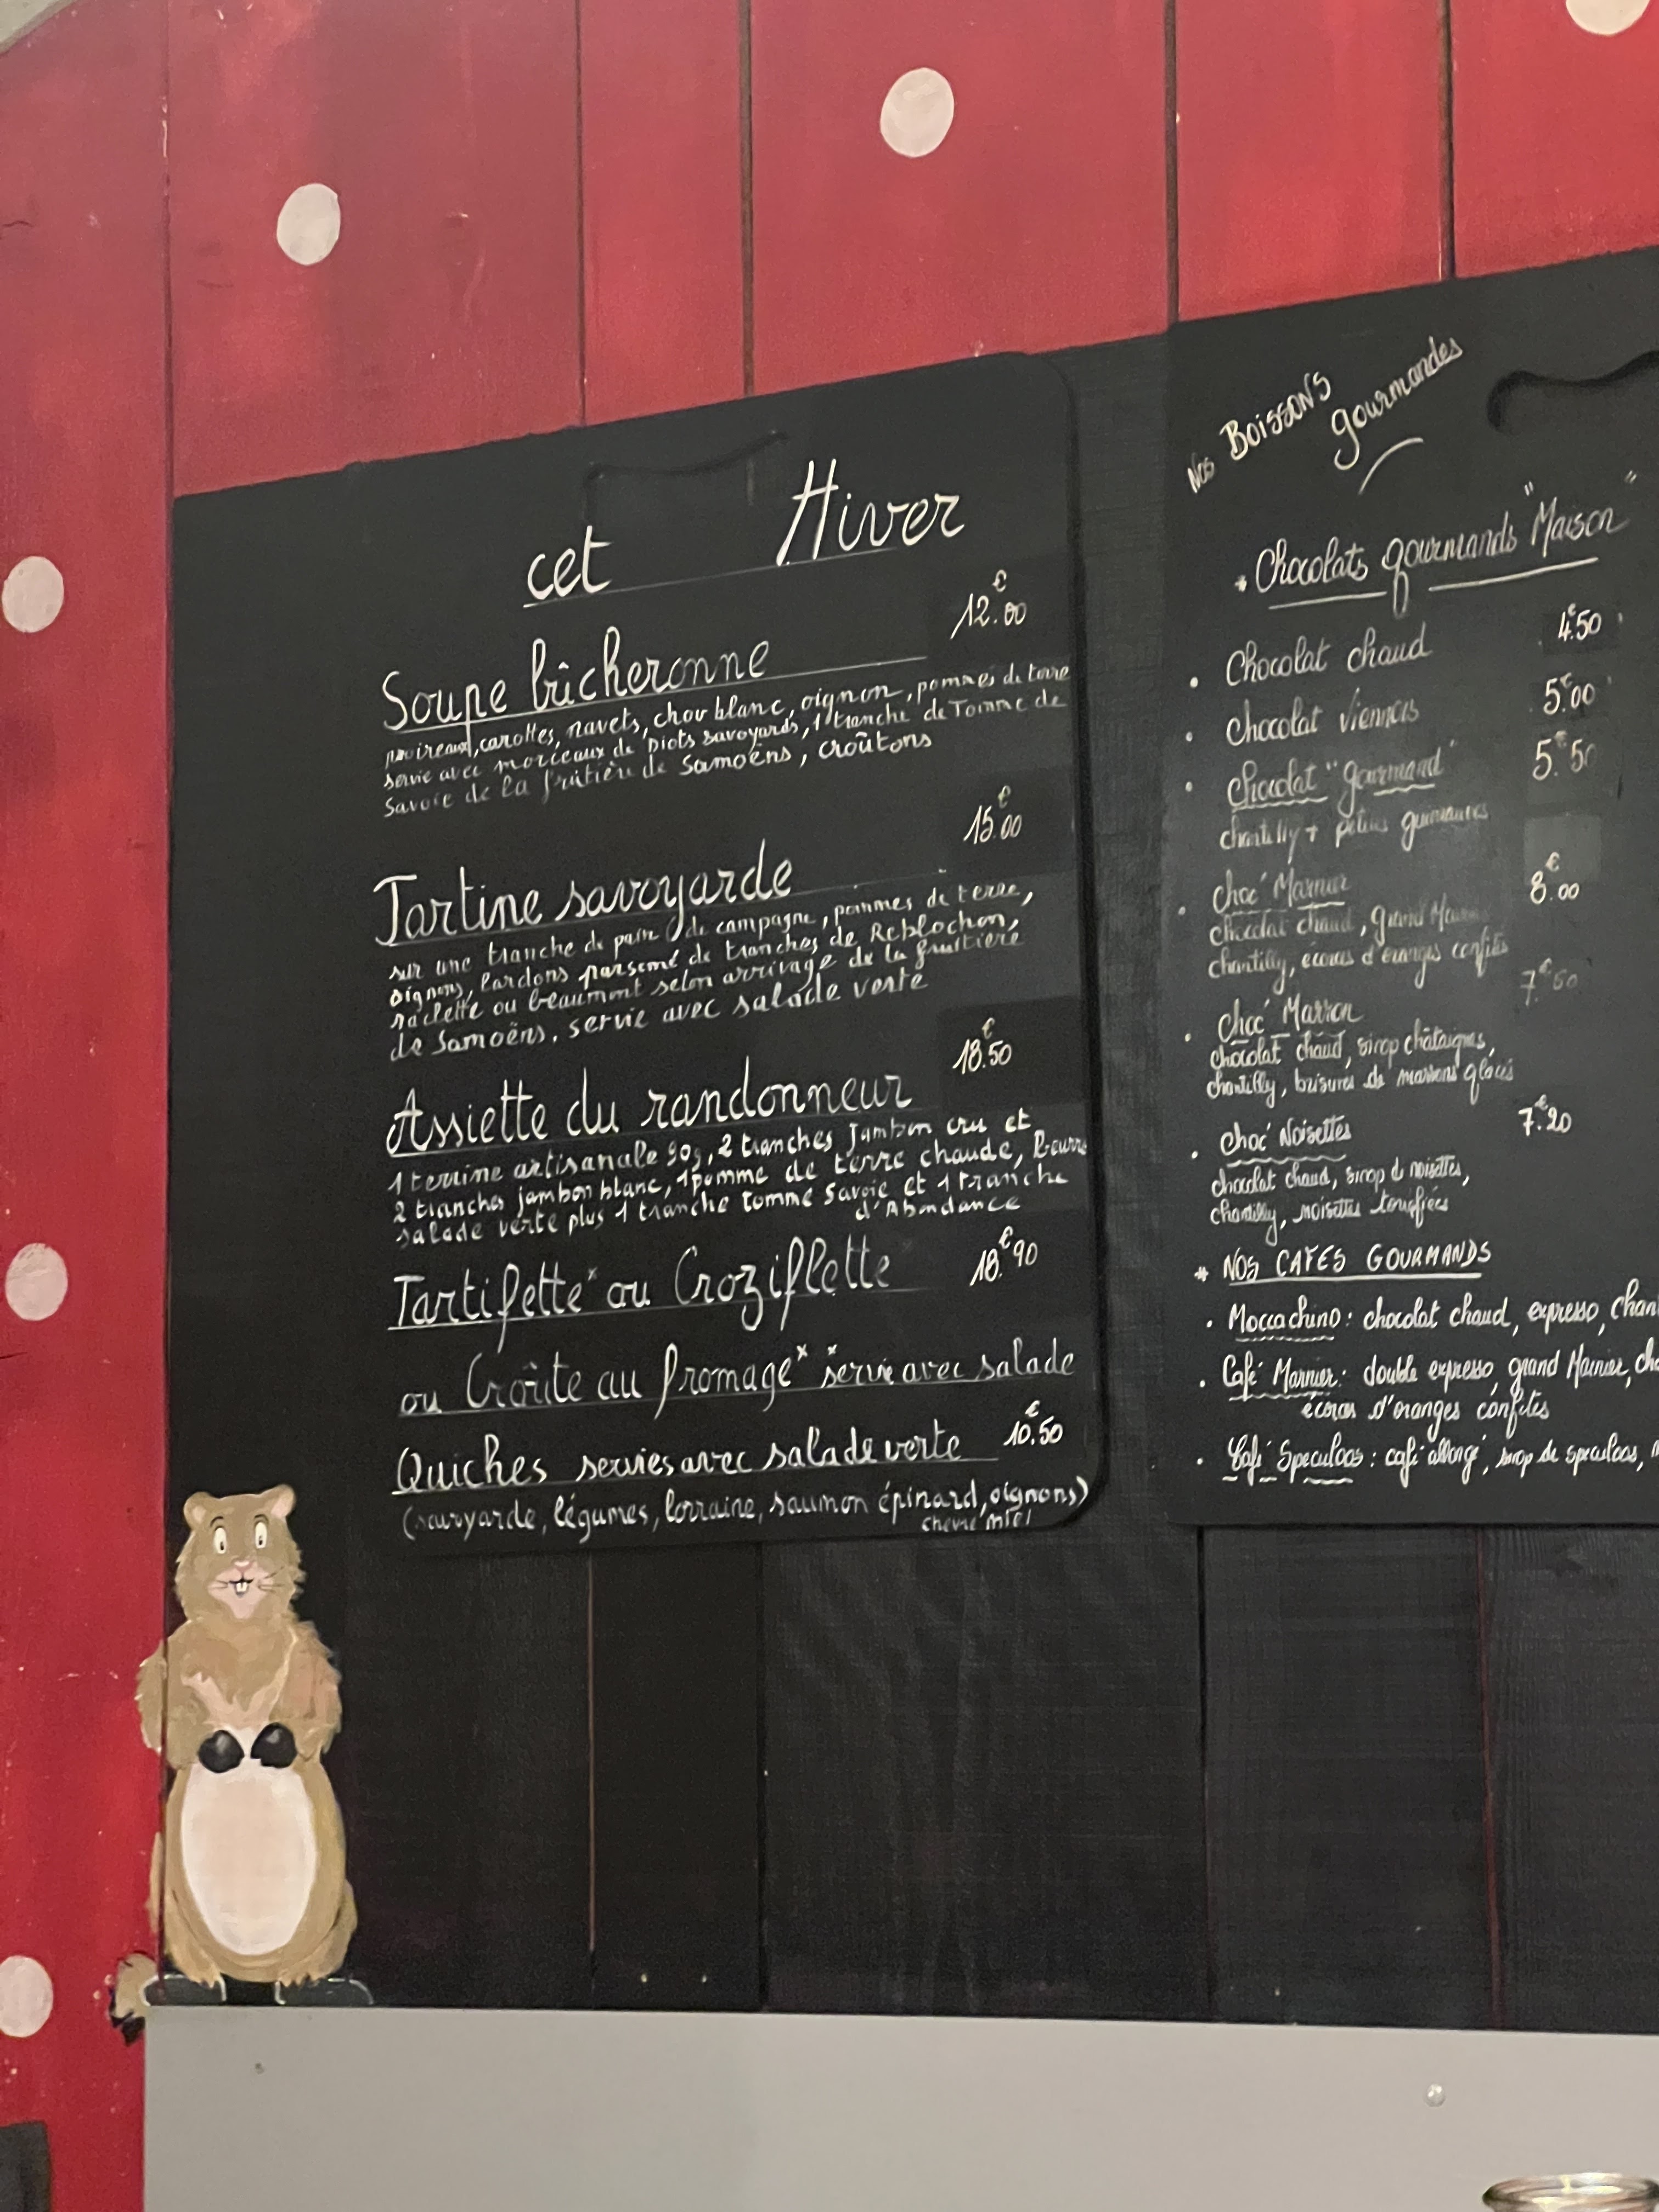 cet Hiver
Soupe bûcheronne 12.00€
poireaux, carottes, navets, chou blanc, oignon, pommes de terre
servie avec morceaux de Diots savoyards, 1 tranche de Tomme de
Savoie de la fruitière de Samoëns, croûtons
Tartine savoyarde 15.00€
sur une tranche de pain de campagne, pommes de terre,
oignons, lardons parsemé de tranches de Reblochon,
raclette ou beaumont selon arrivage de la fruitière
de Samoëns, servie avec salade verte
Assiette du randonneur 18.50€
1 terrine artisanale 90g, 2 tranches jambon cru et
2 tranches jambon blanc, 1 pomme de terre chaude, beurre
salade verte plus 1 tranche tomme Savoie et 1 tranche
d'Abondance
Tartiflette* ou Croziflette 18.€90
ou Croûte au fromage* *servie avec salade
Quiches servies avec salade verte 10.50€
(savoyarde, légumes, lorraine, saumon épinard, oignons)
chèvre miel
Nos BOISSONS
gourmandes
* Chocolats gourmands "Maison"
• Chocolat chaud 4€50
• Chocolat viennois 5€00
• Chocolat "gourmand" 5.€50
chantilly + petites guimauves
• choc' Marnier 8.€00
chocolat chaud, grand Marnier
chantilly, écorces d'oranges confites
• choc' Marron 7.€50
chocolat chaud, sirop châtaignes,
chantilly, brisures de marrons glacés
• choc' Noisettes 7.€20
chocolat chaud, sirop de noisettes,
chantilly, noisettes torréfiées
* NOS CAFES GOURMANDS
• Moccachino : chocolat chaud, expresso, chan
• Café Marnier : double expresso, grand Marnier, cha
écorces d'oranges confites
• Café Speculoos : café allongé, sirop de speculoos,